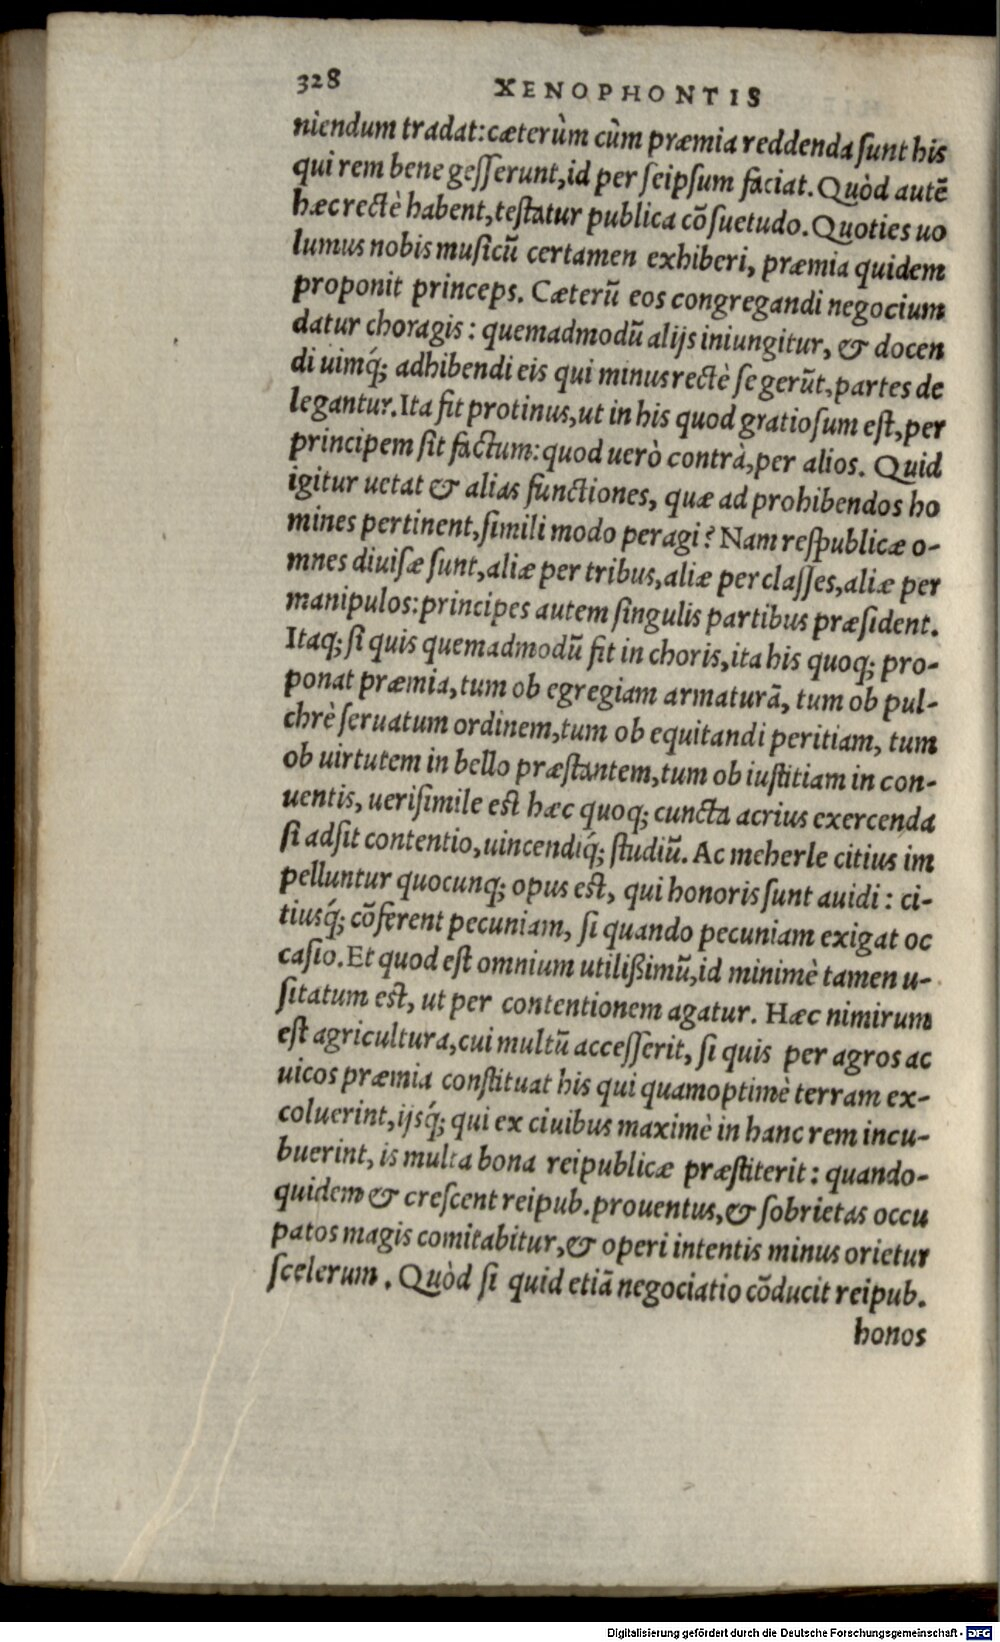 328 XENOPHONTIS
niendum tradat: cæterùm cùm præmia reddenda ſunt his
qui rem bene geſſerunt, id per ſeipſum faciat. Quòd autē
hæc rectè habent, teſtatur publica cōſuetudo. Quoties uo
lumus nobis muſicū certamen exhiberi, præmia quidem
proponit princeps. Cæterū eos congregandi negocium
datur choragis: quemadmodū alijs iniungitur, & docen
di uimq́; adhibendi eis qui minus rectè ſe gerūt, partes de
legantur. Ita fit protinus, ut in his quod gratioſum eſt, per
principem ſit factum: quod uerò contrà, per alios. Quid
igitur uetat & alias functiones, quæ ad prohibendos ho
mines pertinent, ſimili modo peragi? Nam reſpublicæ o-
mnes diuiſæ ſunt, aliæ per tribus, aliæ per claſſes, aliæ per
manipulos: principes autem ſingulis partibus præſident.
Itaq; ſi quis quemadmodū fit in choris, ita his quoq; pro-
ponat præmia, tum ob egregiam armaturā, tum ob pul-
chrè ſeruatum ordinem, tum ob equitandi peritiam, tum
ob uirtutem in bello præſtantem, tum ob iuſtitiam in con-
uentis, ueriſimile eſt hæc quoq; cuncta acrius exercenda
ſi adſit contentio, uincendiq́; ſtudiū. Ac meherle citius im
pelluntur quocunq; opus eſt, qui honoris ſunt auidi: ci-
tiusq́; cōferent pecuniam, ſi quando pecuniam exigat oc
caſio. Et quod eſt omnium utilißimū, id minimè tamen u-
ſitatum eſt, ut per contentionem agatur. Hæc nimirum
eſt agricultura, cui multū acceſſerit, ſi quis per agros ac
uicos præmia conſtituat his qui quamoptimè terram ex-
coluerint, ijsq́; qui ex ciuibus maximè in hanc rem incu-
buerint, is multa bona reipublicæ præſtiterit: quando-
quidem & creſcent reipub. prouentus, & ſobrietas occu
patos magis comitabitur, & operi intentis minus orietur
ſcelerum. Quòd ſi quid etiā negociatio cōducit reipub.
honos
Digitalisierung gefördert durch die Deutsche Forschungsgemeinschaft - DFG